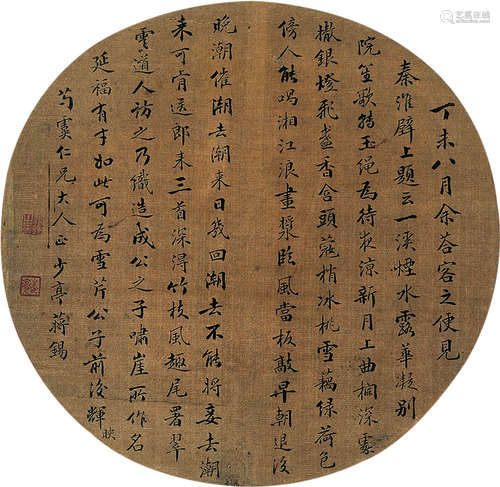 丁未八月余荅客之便見
秦淮壁上題云一溪煙水露華凝別
院笙歌轉玉繩為待夜涼新月上曲欄深處
撤銀燈飛盞香含頭蔻梢冰桃雪藕綠荷包
傍人能唱湘江浪畫槳臨風當板敲早朝退後
晚潮催潮去潮來日幾回潮去不能將妾去潮
來可肯送郎來三首深得竹枝風趣尾署翠
雲道人訪之乃織造成公之子嘯崖所作名
延福有才如此可為雪芹公子前後輝映
芍雲仁兄大人正 少亭蔣錫